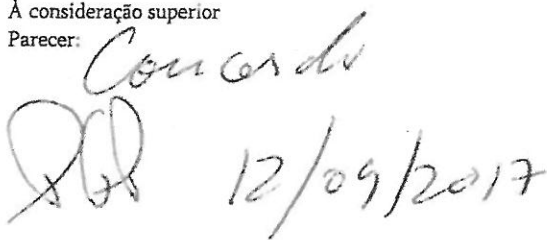 À consideração superior
Parecer: Concordo
12/09/2017